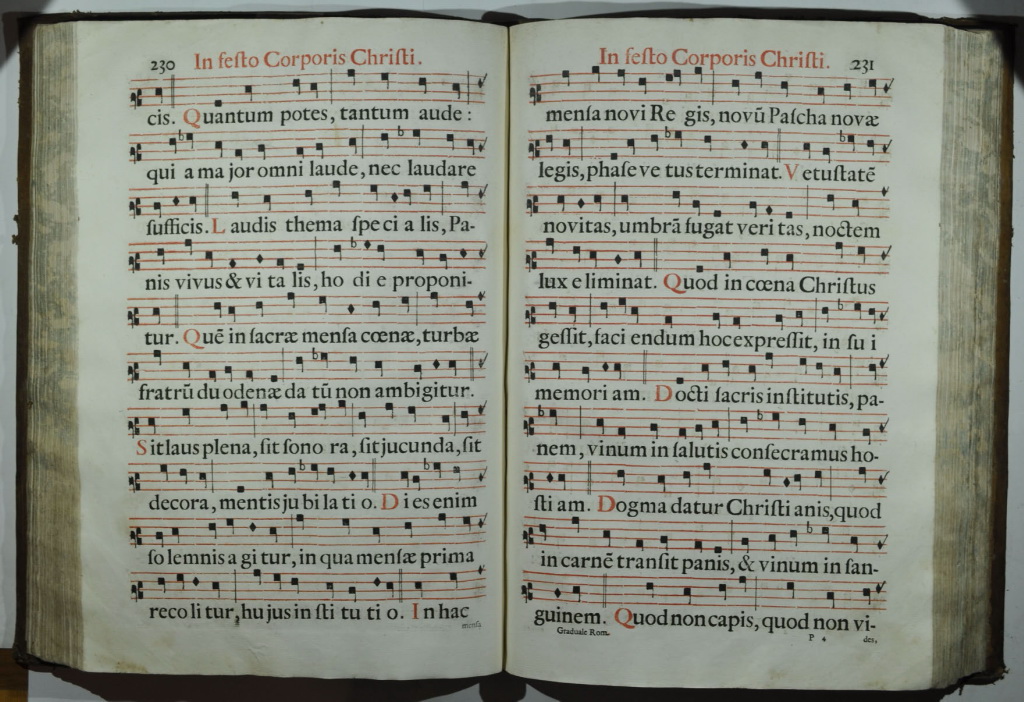 230 In feſto Corporis Chriſti.
cis. Quantum potes, tantum aude:
qui a ma jor omni laude, nec laudare
ſufficis. L audis thema ſpe ci a lis, Pa-
nis vivus & vi ta lis, ho di e proponi-
tur. Quē in ſacræ menſa cœnæ, turbæ
fratrū du odenæ da tū non ambigitur.
Sit laus plena, ſit ſono ra, ſit jucunda, ſit
decora, mentis ju bi la ti o. D i es enim
ſo lemnis a gi tur, in qua menſæ prima
reco li tur, hu jus in ſti tu ti o. In hac
menſa
In feſto Corporis Chriſti. 231
menſa novi Re gis, novū Paſcha novæ
legis, phaſe ve tus terminat. V etuſtatē
novitas, umbrā fugat veri tas, noctem
lux e liminat. Quod in cœna Chriſtus
geſſit, faci endum hoc expreſſit, in ſu i
memori am. Docti ſacris inſtitutis, pa-
nem, vinum in ſalutis conſecramus ho-
ſti am. Dogma datur Chriſti anis, quod
in carnē tranſit panis, & vinum in ſan-
guinem. Quod non capis, quod non vi-
Graduale Rom. P 4 des,